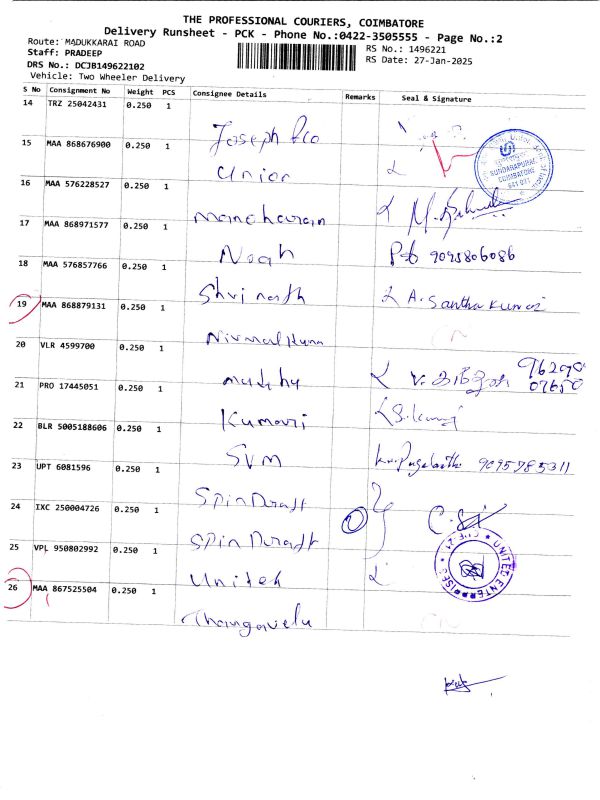 THE PROFESSIONAL COURIERS, COIMBATORE
Delivery Runsheet - PCK - Phone No.:0422-3505555 - Page No.:2
Route: MADUKKARAI ROAD
RS No.: 1496221
Staff: PRADEEP
RS Date: 27-Jan-2025
DRS No.: DCJB149622102
Vehicle: Two Wheeler Delivery
S No Consignment No Weight PCS Consignee Details Remarks Seal & Signature
14 TRZ 25042431 0.250 1 Joseph
15 MAA 868676900 0.250 1 Union
SUNDARAPURAM COIMBATORE
16 MAA 576228527 0.250 1 Manoharan
17 MAA 868971577 0.250 1 Noah 9095806086
18 MAA 576857766 0.250 1 Shrinath A. Santhakumar
19 MAA 868879131 0.250 1 Nirmal Kuma
20 VLR 4599700 0.250 1 Madhy
21 PRO 17445051 0.250 1 Kumari
22 BLR 5005188606 0.250 1 SVM 9095785311
23 UPT 6081596 0.250 1 Spin Draft
24 IXC 250004726 0.250 1 Spin Draft
25 VPL 950802992 0.250 1 Unitek
UNITED ENTERPRISES
26 MAA 867525504 0.250 1 Thangavelu